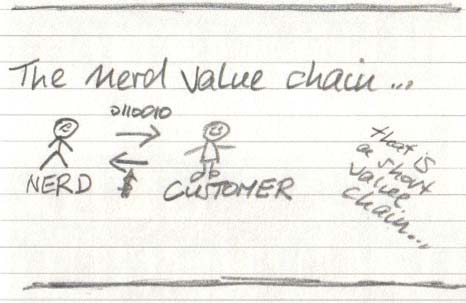 The nerd value chain...
0110010
NERD
$
CUSTOMER
that is
a short
value
chain...